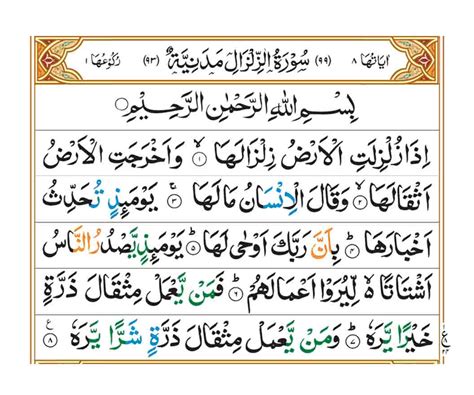 اٰيَاتُهَا ٨ (٩٩) سُوْرَةُ الزِّلْزَالِ مَدَنِيَّةٌ (٩٣) رُكُوْعُهَا ١
بِسْمِ اللهِ الرَّحْمٰنِ الرَّحِيْمِ
اِذَا زُلْزِلَتِ الْاَرْضُ زِلْزَالَهَا ۙ ١ وَاَخْرَجَتِ الْاَرْضُ
اَثْقَالَهَا ۙ ٢ وَقَالَ الْاِنْسَانُ مَا لَهَا ۚ ٣ يَوْمَئِذٍ تُحَدِّثُ
اَخْبَارَهَا ۙ ٤ بِاَنَّ رَبَّكَ اَوْحٰى لَهَا ؕ ٥ يَوْمَئِذٍ يَّصْدُرُ النَّاسُ
اَشْتَاتًا ۙ لِّيُرَوْا اَعْمَالَهُمْ ؕ ٦ فَمَنْ يَّعْمَلْ مِثْقَالَ ذَرَّةٍ
خَيْرًا يَّرَهٗ ؕ ٧ وَمَنْ يَّعْمَلْ مِثْقَالَ ذَرَّةٍ شَرًّا يَّرَهٗ ٨